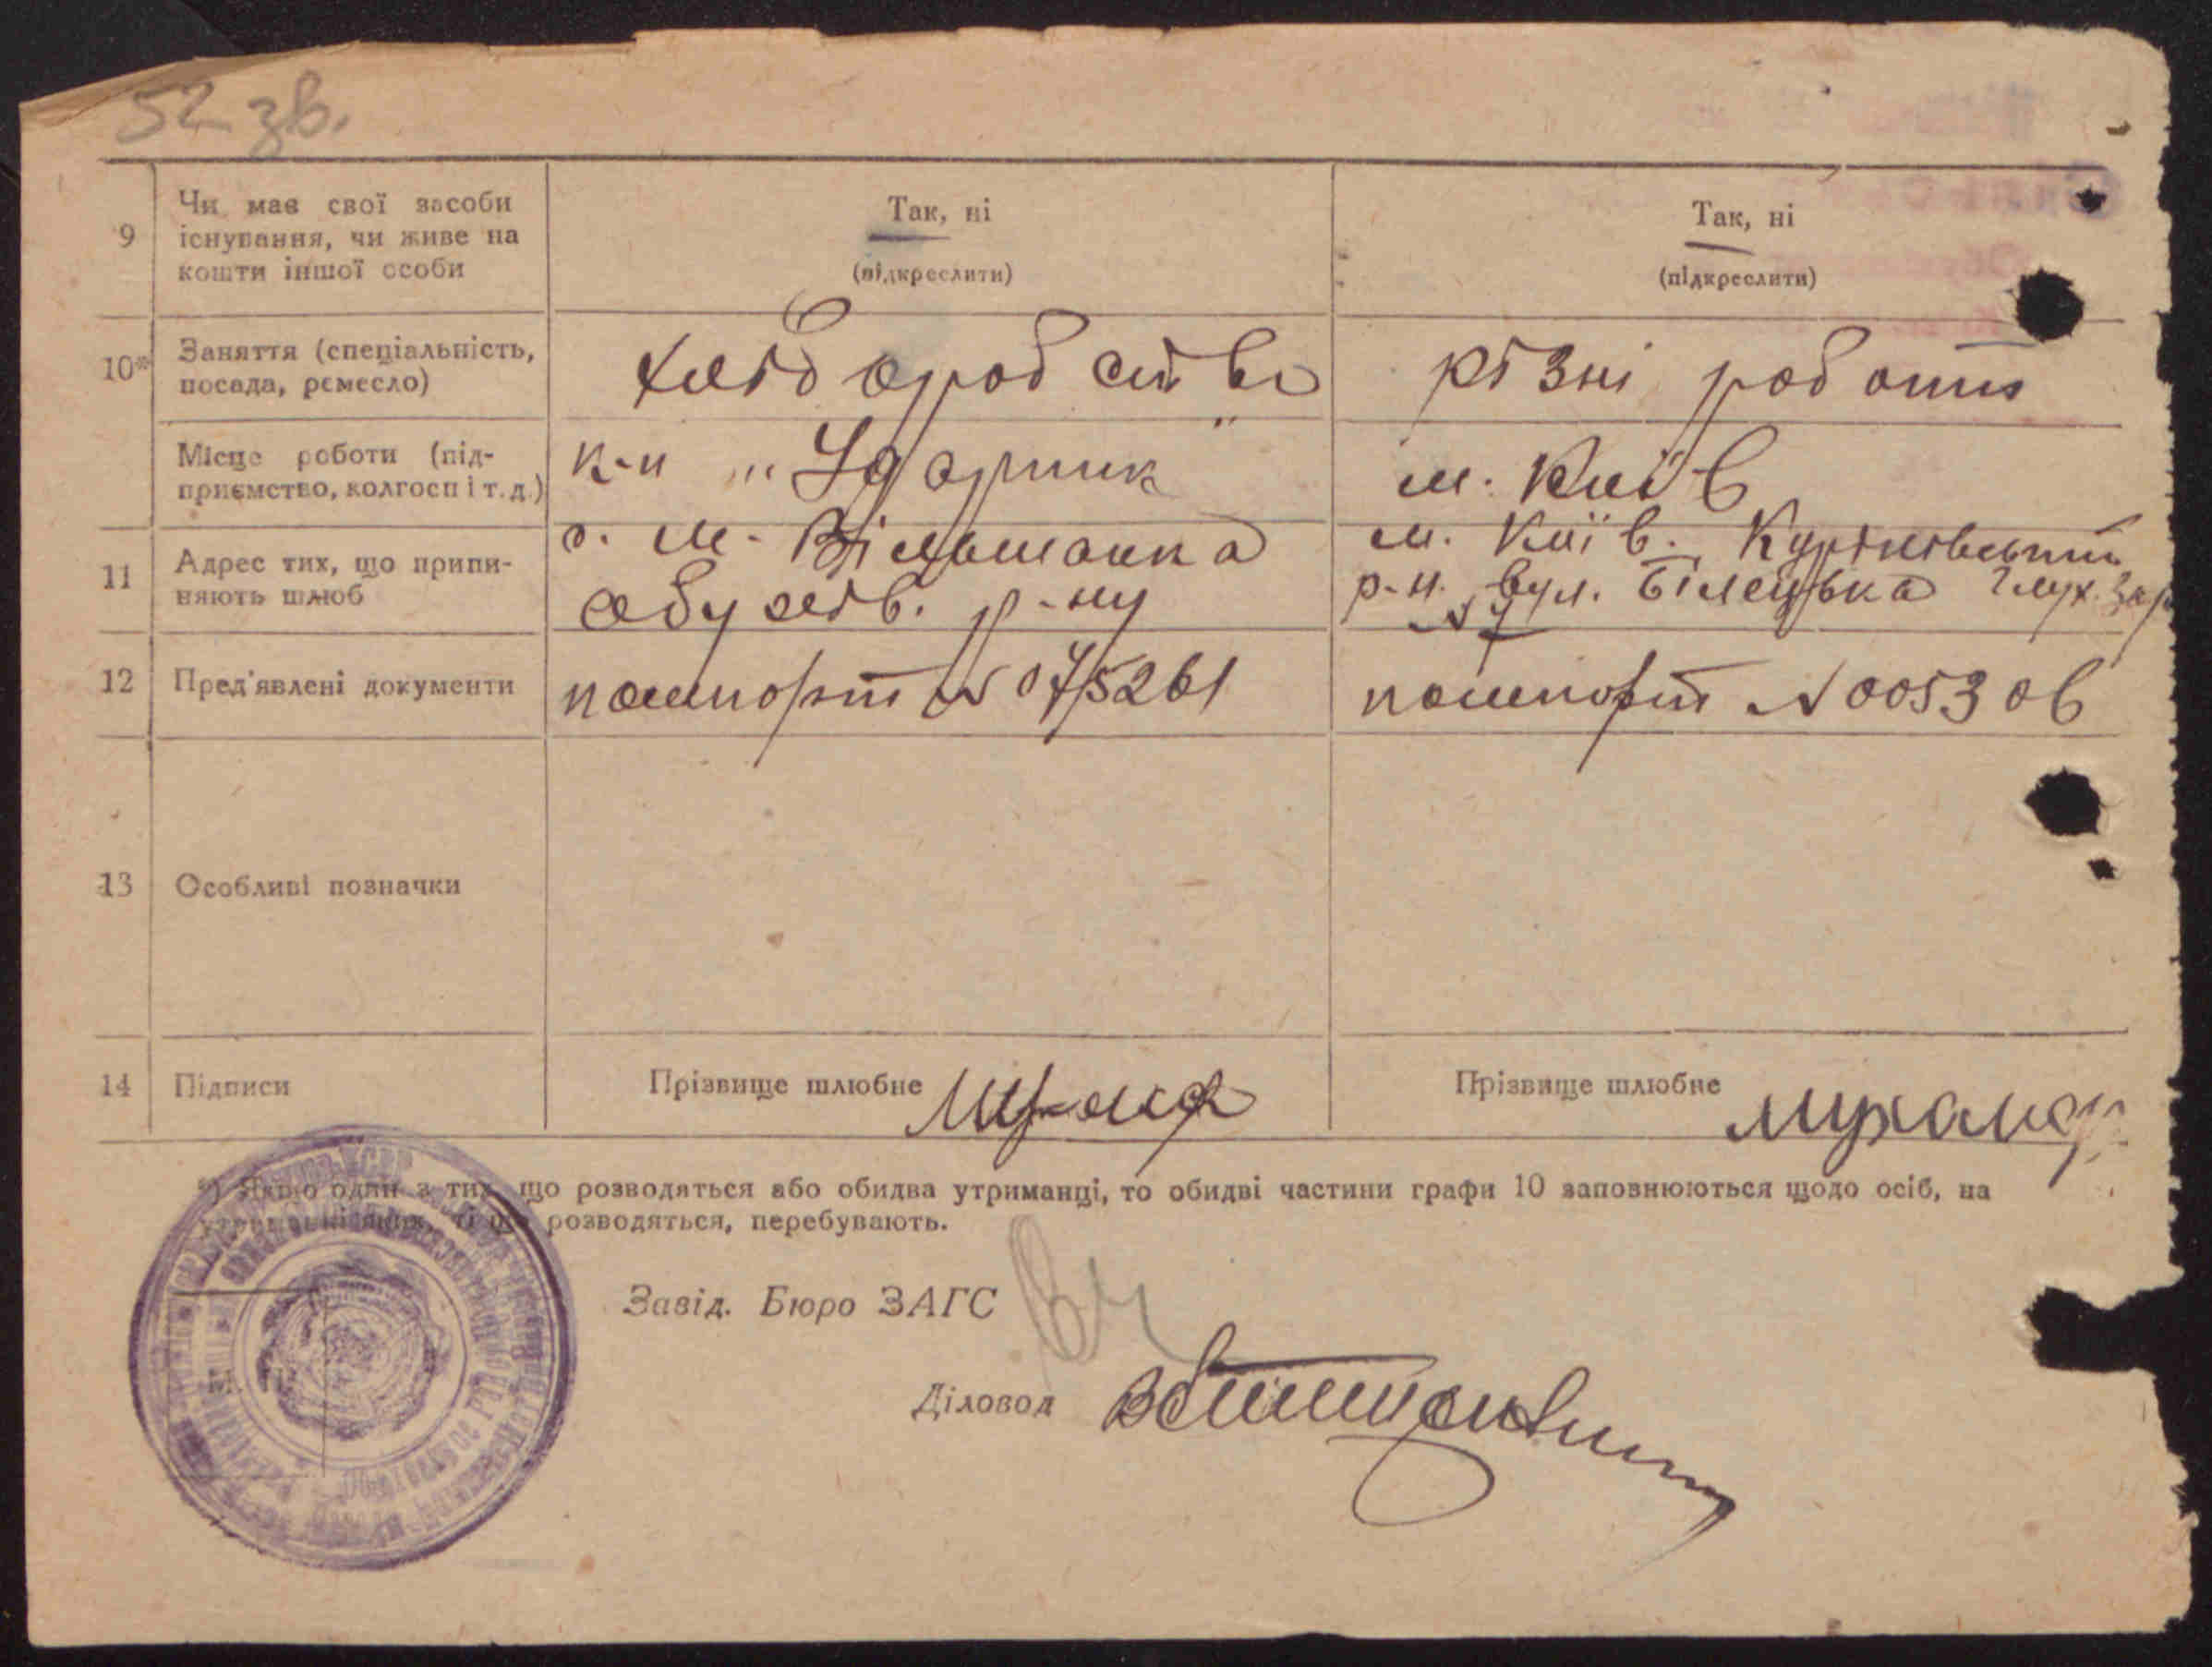 52 зв.
9
Чи має свої засоби
існування, чи живе на
кошти іншої особи
Так, ні
(підкреслити)
Так, ні
(підкреслити)
10*
Заняття (спеціальність,
посада, ремесло)
хлібороб ство
різні роботи
Місце роботи (під-
приємство, колгосп і т. д.)
к-п "Ударник"
м. Київ
11
Адрес тих, що припи-
няють шлюб
с. м. Вільшанка
обухів. р-ну
м. Київ. Куренівський
р-н. вул. Білецька
N 7
12
Пред'явлені документи
пашпорт N 075261
пашпорт N 005306
13
Особливі позначки
14
Підписи
Прізвище шлюбне
Прізвище шлюбне
*) Якщо один з тих, що розводяться або обидва утриманці, то обидві частини графи 10 заповнюються щодо осіб, на
утриманні яких, ті що розводяться, перебувають.
Завід. Бюро ЗАГС
Діловод
М. П.